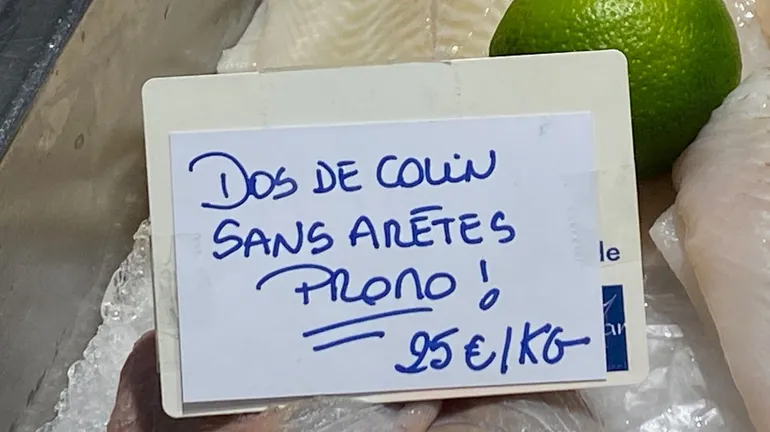 DOS DE COLIN
SANS ARÊTES
PROMO !
25€/KG
le